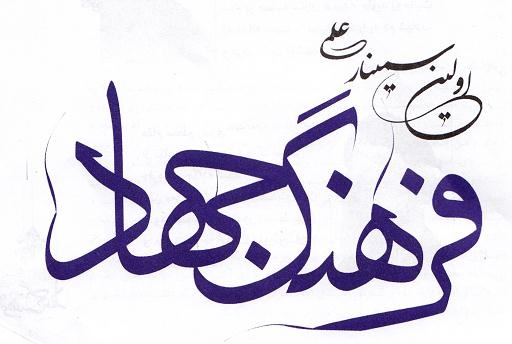 اولین سمینار علمی
فرهنگ جهاد